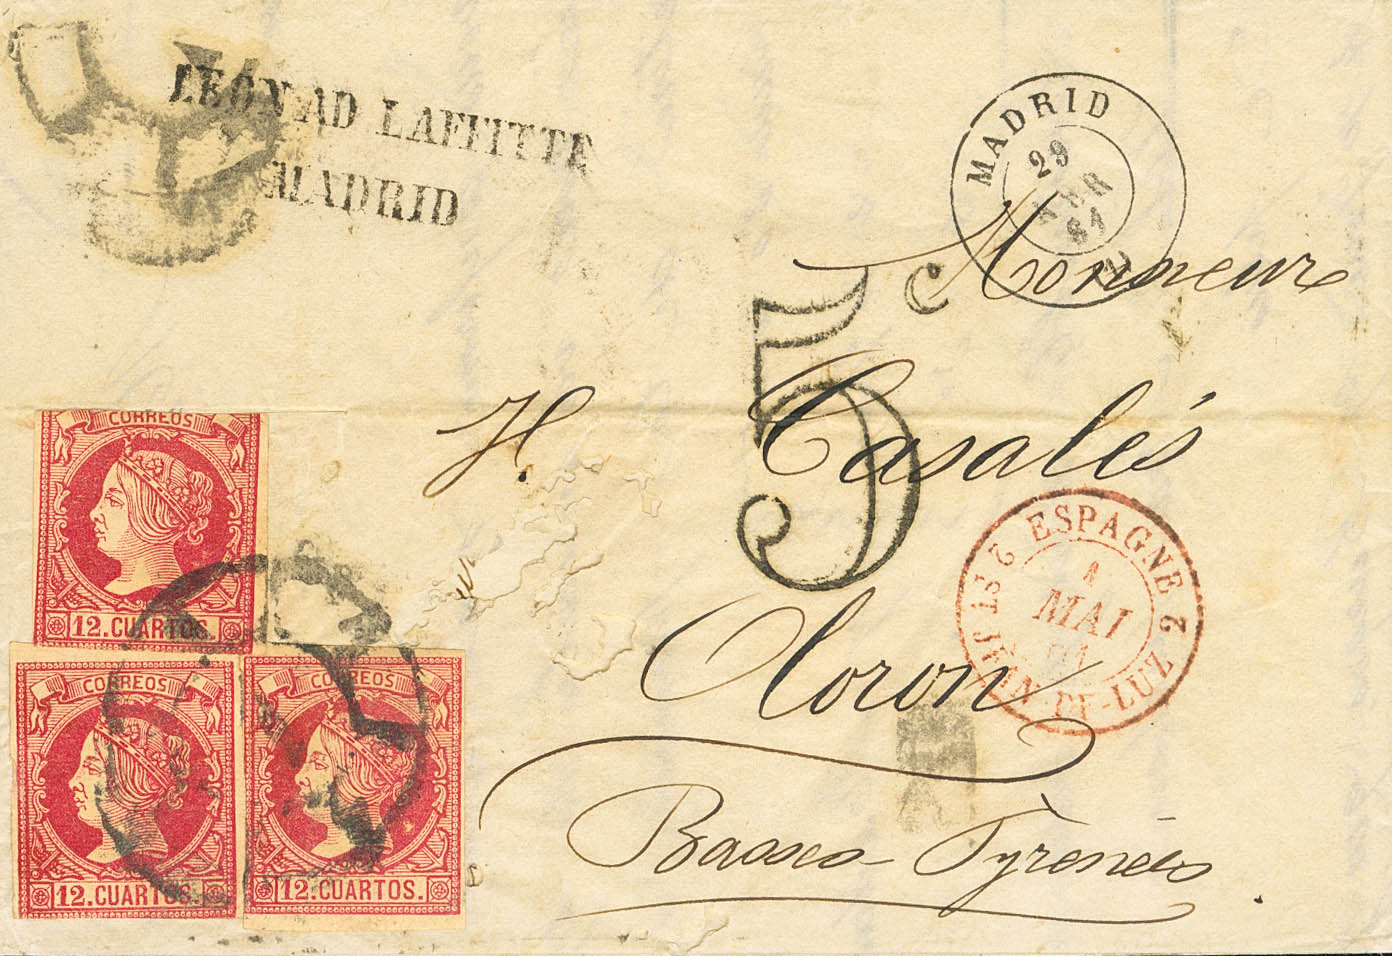 LEON AD LAFFITTE
MADRID
MADRID
29
ABR
61
Monsieur
5 c
H. Casalés
ESPAGNE
2 ST JEAN-DE-LUZ 2
1
MAI
61
Oloron
Basses-Pyrénées
CORREOS
12.CUARTOS.
CORREOS
12 CUARTOS.
CORREOS
12 CUARTOS.